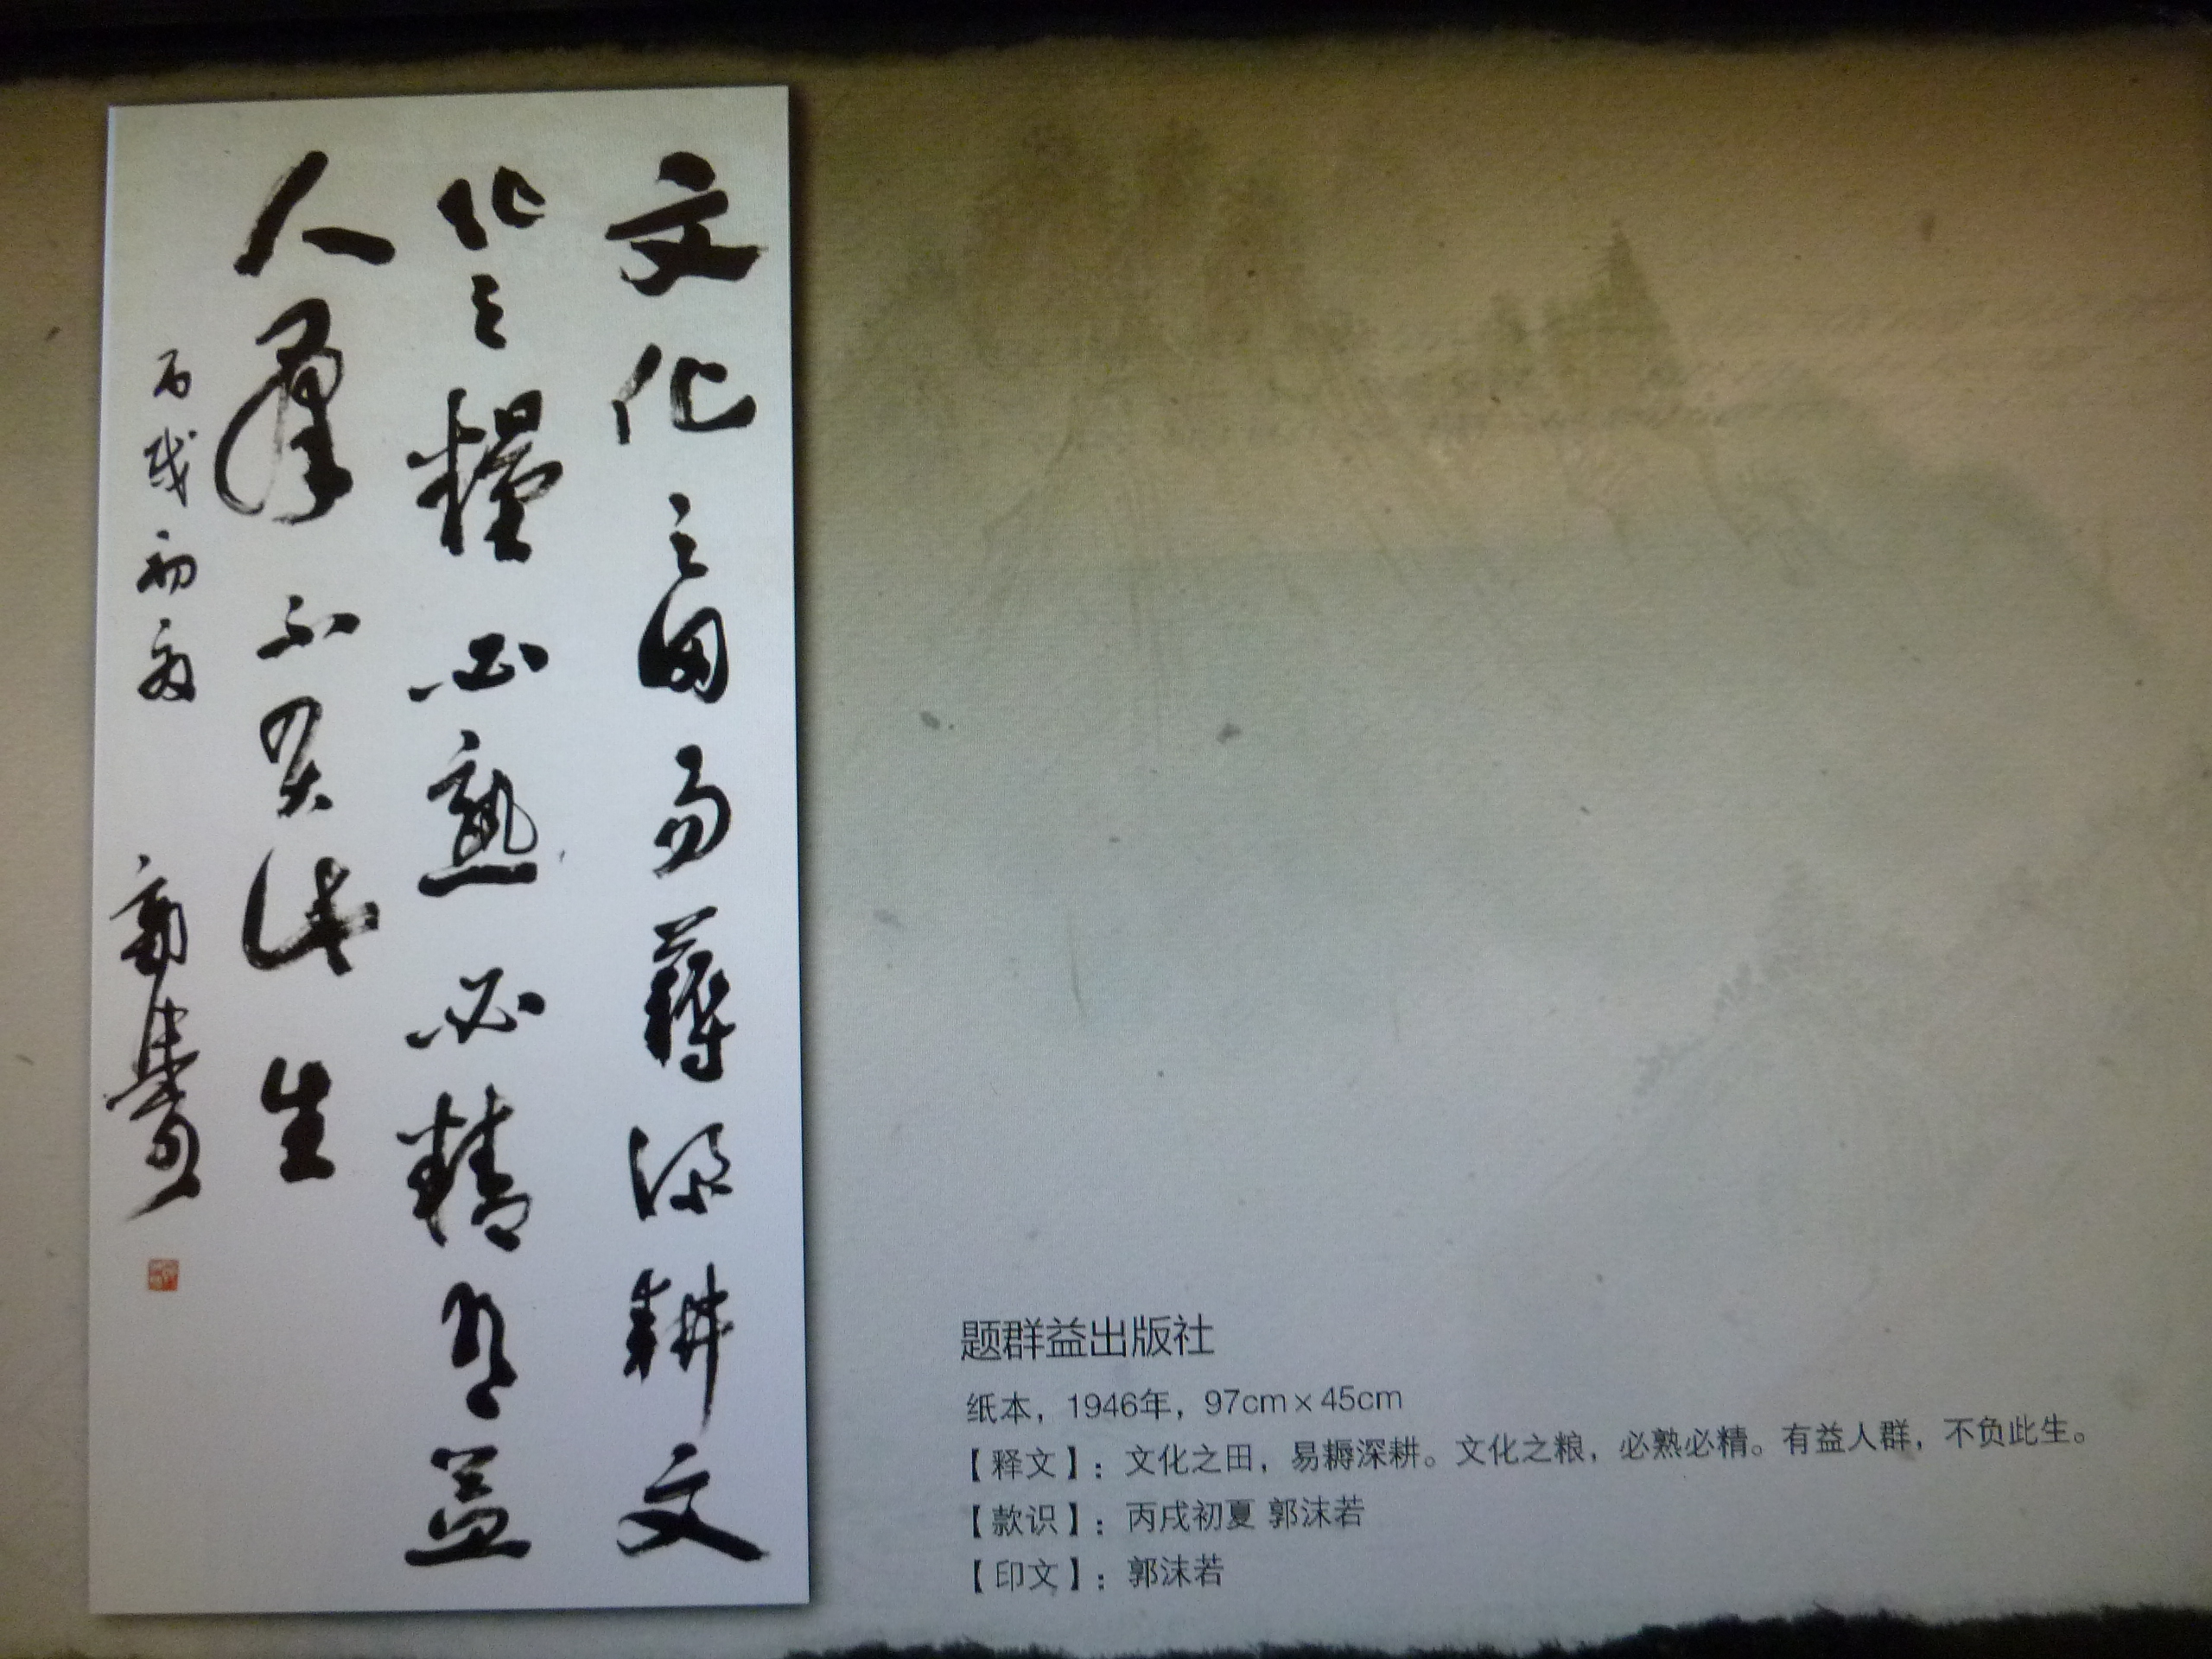 文化之田易耨深耕文
化之糧必熟必精有益
人群不负此生
丙戌初夏 郭沫若
题群益出版社
纸本，1946年，97cm×45cm
【释文】：文化之田，易耨深耕。文化之粮，必熟必精。有益人群，不负此生。
【款识】：丙戌初夏 郭沫若
【印文】：郭沫若